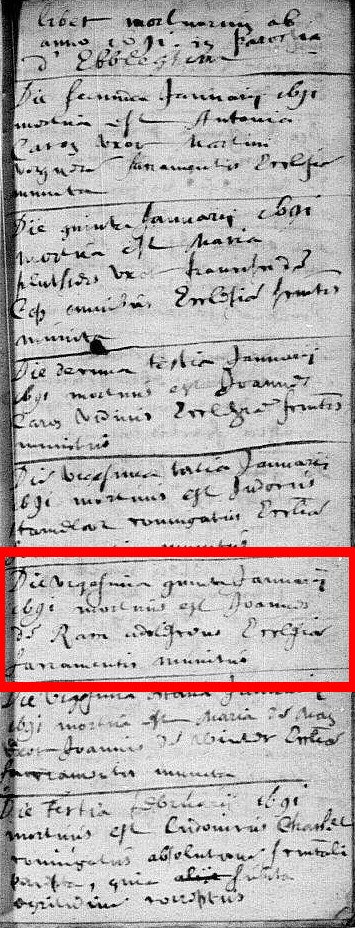 liber mortuorum ab
anno 1691 in Parochia
d'Ebblegem
Die secunda Januarij 1691
mortua est Antonia
Caroz uxor Martini
sacramentis Ecclesiæ
munita
Die quinta Januarij 1691
mortua est Maria
uxor Francisci de
Cep omnibus Ecclesiæ sacramentis
munita
Die decima tertia Januarij
1691 mortuus est Joannes
Caroz viduus Ecclesiæ sacramentis
munitus
Die vigesima tertia Januarij
1691 mortuus est Judocus
conjugatus Ecclesiæ
munitus
Die vigesima quinta Januarij
1691 mortuus est Joannes
de Ram adolescens Ecclesiæ
sacramentis munitus
Die vigesima octava Januarij
1691 mortua est Maria de
uxor Joannis de Winter Ecclesiæ
sacramentis munita
Die tertia Februarij 1691
mortuus est Ludovicus Charlet
conjugatus absolutione sacramentali
percepta, quia subita
ægritudine correptus